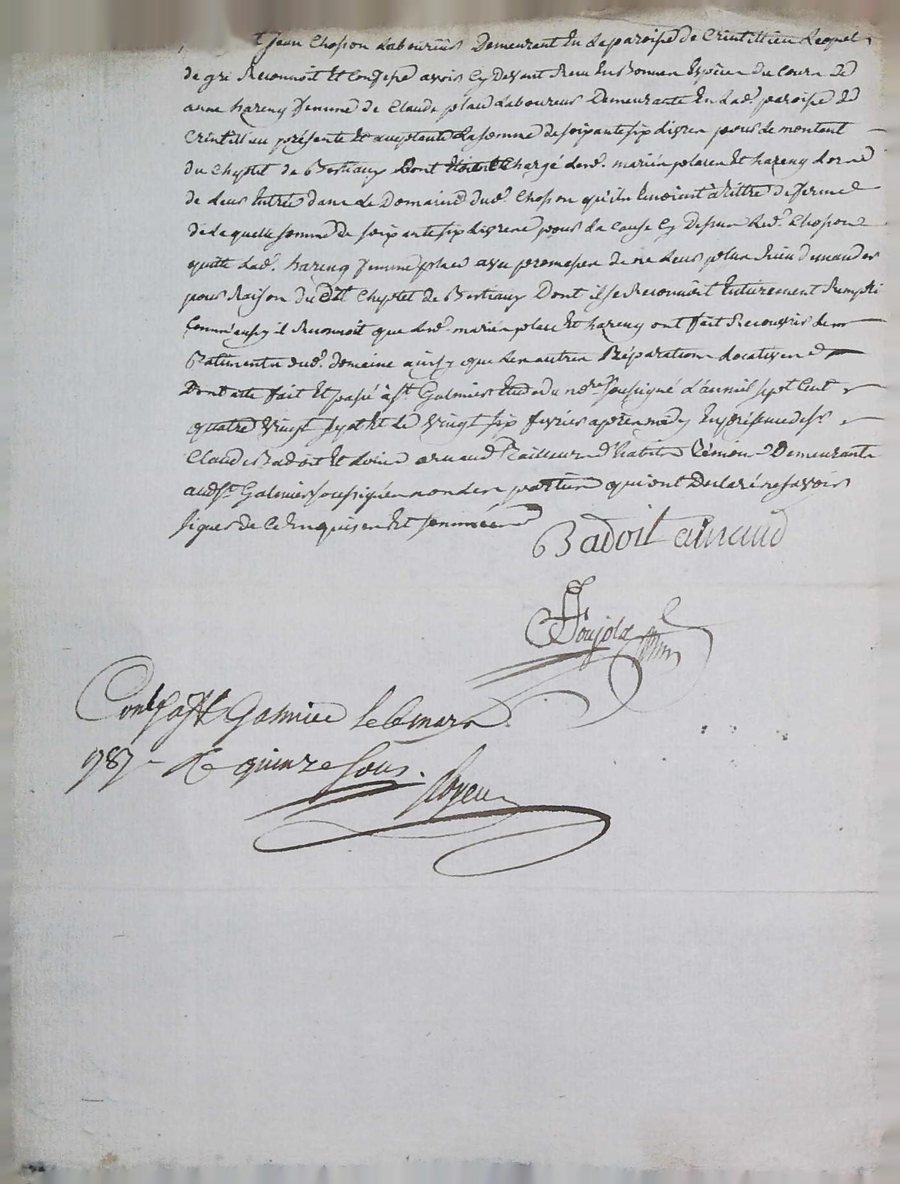 t Jean Chosson Laboureur Demeurant En La paroisse de Crintillieu Lequel
de gré Reconnoit Et Confesse avoir Cy Devant Reçu En Bonnes Espèces du Cours de
anne hareng femme de Claude place Laboureur Demeurante En Lad. paroisse de
Crintilleu présente Et acceptante La somme de soixante six Livres pour Le montant
du Cheptel de Bestiaux Dont Etoient Chargé Lesd. mariés place Et hareng Lors de
de Leur Entré dans Le Domaine dud. Chosson qu'ils Tenoient à titre de ferme
de Laquelle somme de soixante six Livres pour La Cause Cy Dessus Led. Chosson
quitte Lad. hareng femme place avec promesse de ne Leur plus Rien demander
pour Raison du dit Cheptel de Bestiaux Dont il se Reconnoit Entierement Rempli
Comm'aussy il Reconnoit que Lesd. mariés place Et hareng ont fait Recouvrir Les
Batiments dud. domaine ainsy que Les autres Réparations Locatives
Dont acte fait Et passé à St. Galmier Etude du nore. soussigné L'an mil sept Cent
quatre vingt sept Et Le vingt six fevrier après midy En présence de sr.
Claude Badoit Et Louis arnaud Tailleur d'habits Témoins Demeurants
aud. St. Galmier soussignés non Les parties qui ont Declaré ne savoir
signer de Ce Enquises Et sommées
Badoit arnaud
Conlé à St Galmier le 6 mars
1787 - Re quinze sous.